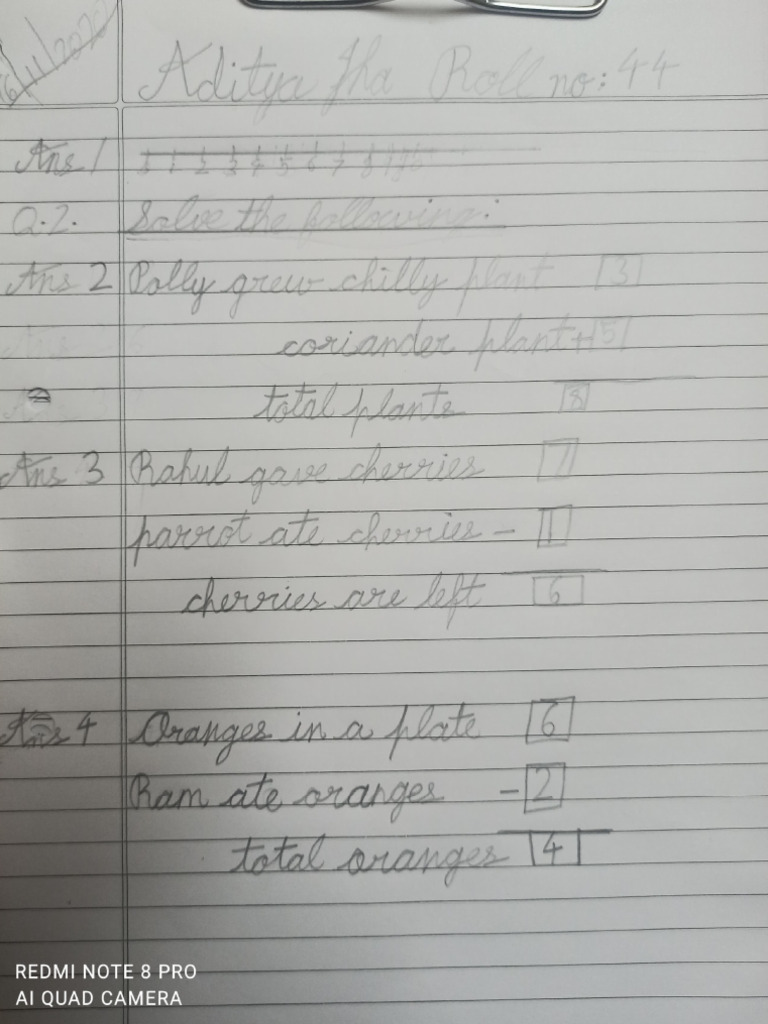 16/11/2020
Aditya Jha Roll no: 44
Ans 1 0 1 2 3 4 5 6 7 8 9 10
Q.2. Solve the following:
Ans 2 Polly grew chilly plant 3
coriander plant + 5
total plants 8
Ans 3 Rahul gave cherries 7
parrot ate cherries - 1
cherries are left 6
Ans 4 Oranges in a plate 6
Ram ate oranges - 2
total oranges 4
REDMI NOTE 8 PRO
AI QUAD CAMERA